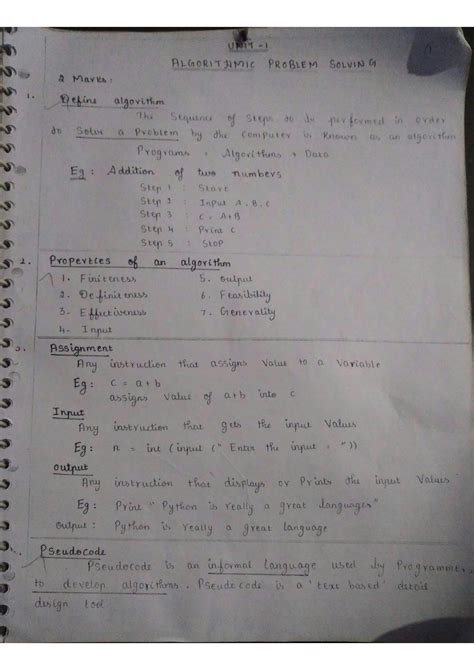 UNIT - 1
ALGORITHMIC PROBLEM SOLVING
2 Marks:
1. Define algorithm
The Sequence of Steps to be performed in order
to Solve a Problem by the Computer is known as an algorithm
Programs = Algorithms + Data
Eg: Addition of two numbers
Step 1 : Start
Step 2 : Input A, B, C
Step 3 : C = A+B
Step 4 : Print C
Step 5 : Stop
2. Properties of an algorithm
1. Finiteness 5. Output
2. Definiteness 6. Feasibility
3. Effectiveness 7. Generality
4. Input
3. Assignment
Any instruction that assigns Value to a Variable
Eg: C = a+b
assigns Value of a+b into c
Input
Any instruction that gets the input Values
Eg: n = int (input (" Enter the input = "))
Output
Any instruction that displays or Prints the input Values
Eg: Print " Python is really a great languages"
Output : Python is really a great language
Pseudocode
Pseudocode is an informal language used by Programmers
to develop algorithms. Pseudocode is a 'text based' detail
design tool